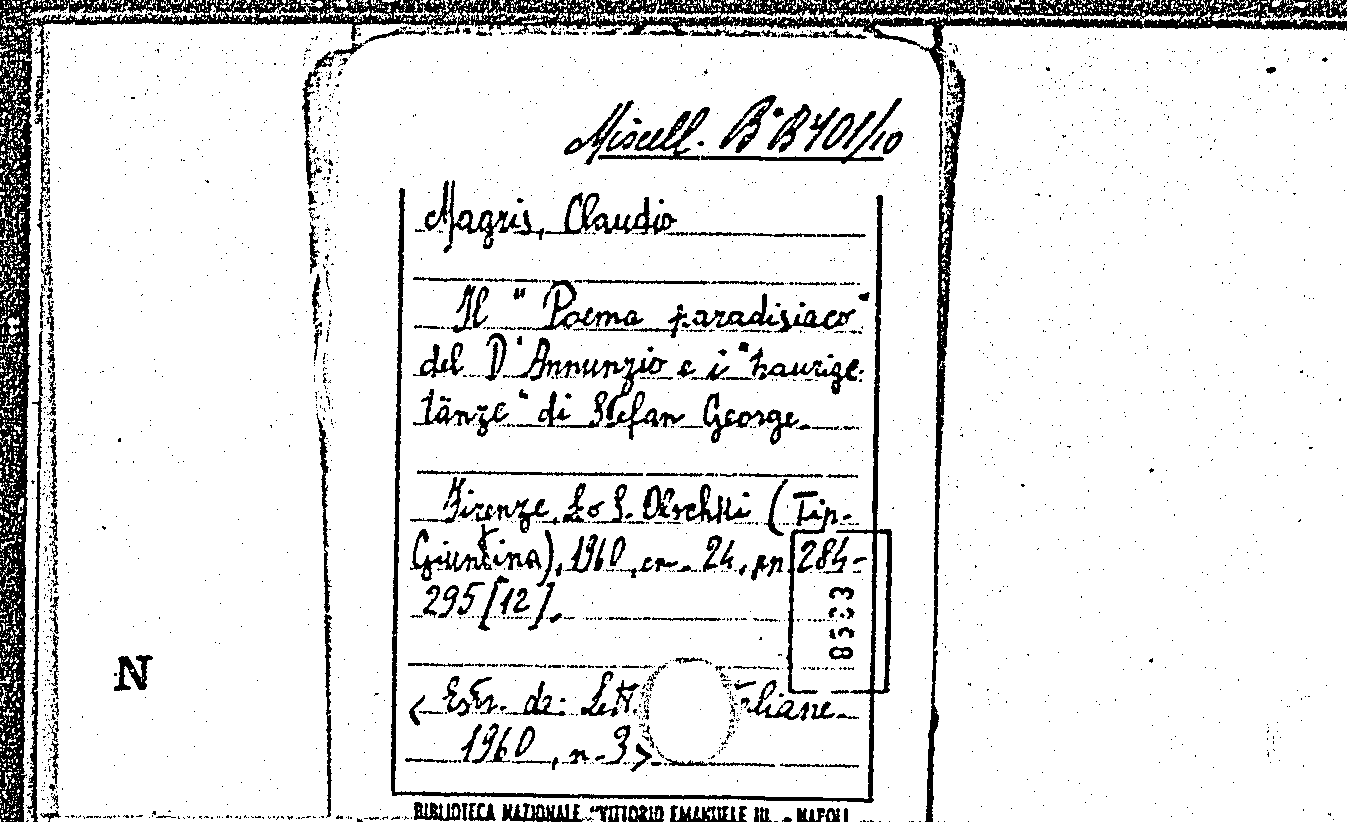 Miscell. B*B 701/10
Magris, Claudio
Il "Poema paradisiaco"
del D'Annunzio e i "Traurige-
tänze" di Stefan George.
Firenze, L. S. Olschki (Tip.
Giuntina), 1960, cm. 24, pp. 284-
295 [12].
8533
N
< Estr. da: Lett. taliane.
1960, n. 3 >
BIBLIOTECA NAZIONALE "VITTORIO EMANUELE III" - NAPOLI